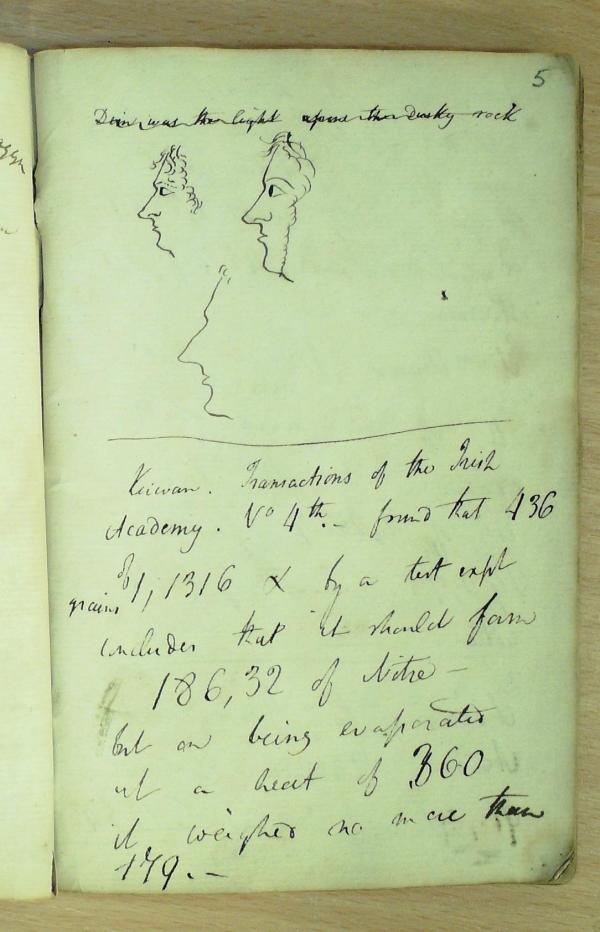 5
Dim was the light upon the dusky rock
Kirwan. Transactions of the Irish
Academy. Vo 4th. – found that 436
grains of 1,1316 x by a test expt
concludes that it should form
186,32 of Nitre –
but on being evaporated
at a heat of 360
it weighed no more than
179. –